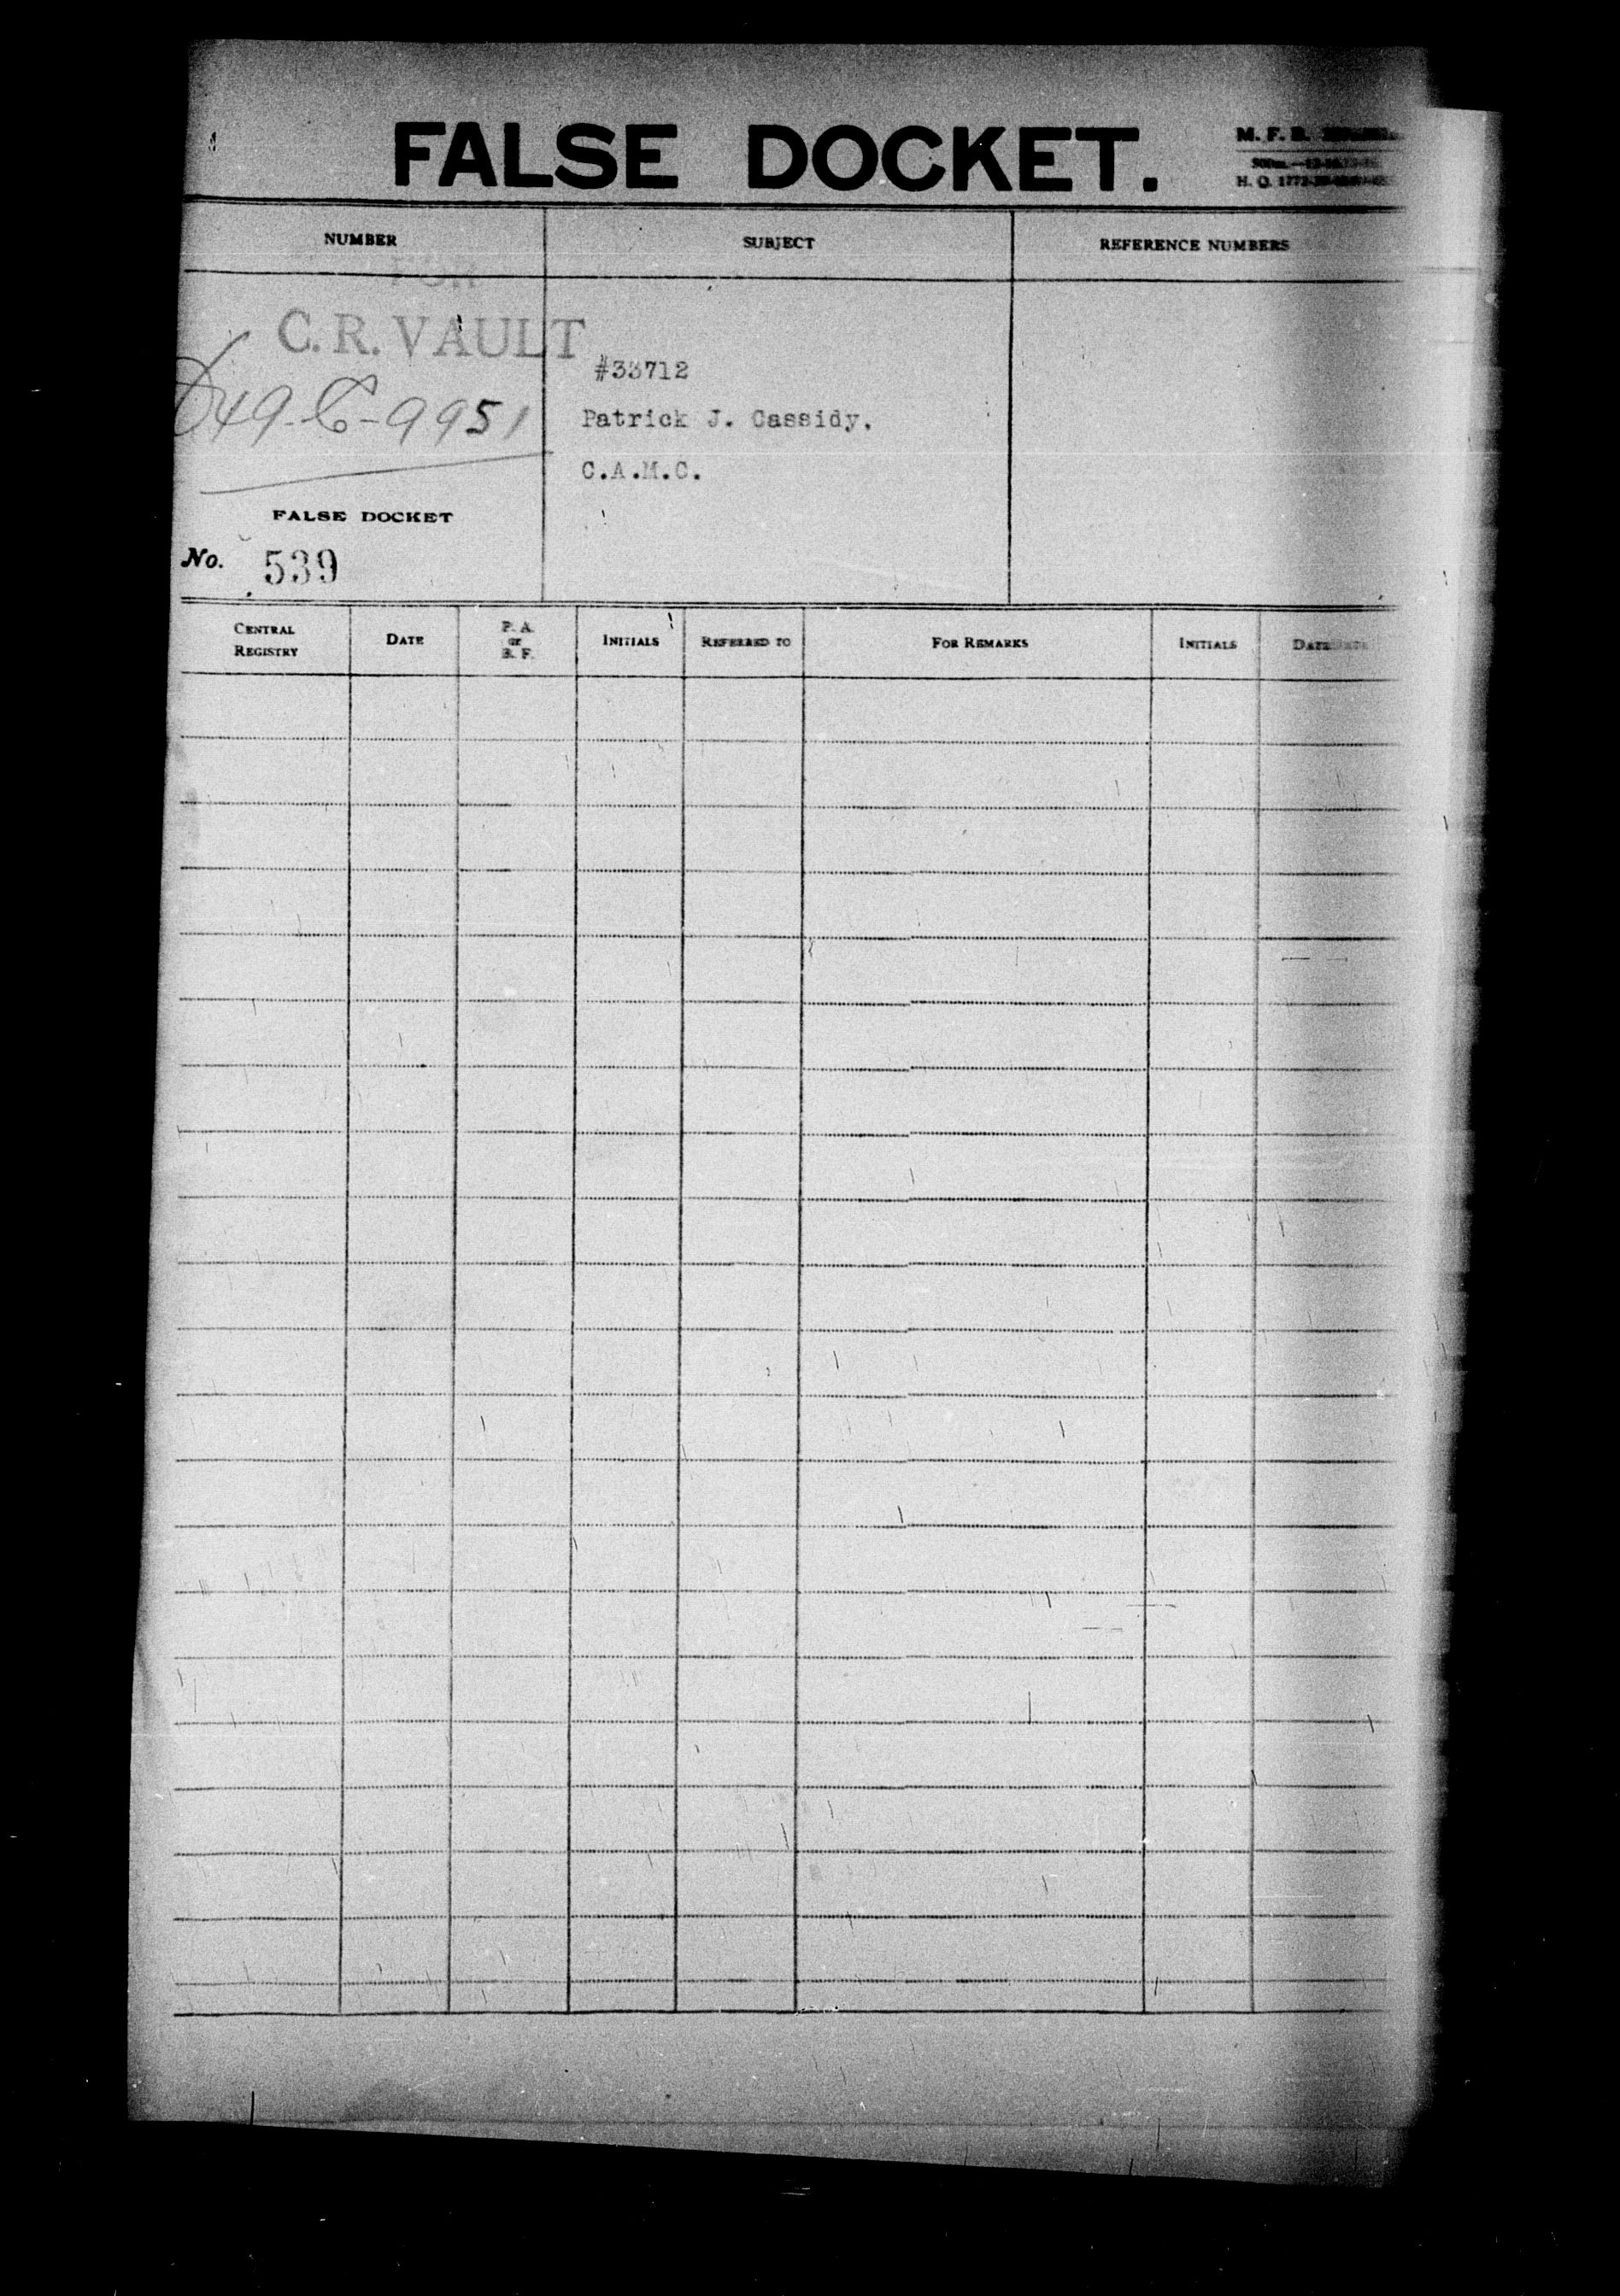 FALSE DOCKET.
M. F. B.
H. Q. 1772-
NUMBER SUBJECT REFERENCE NUMBERS
FOR
C. R. VAULT
#33712
649-C-9951
Patrick J. Cassidy.
C.A.M.C.
FALSE DOCKET
No. 539
CENTRAL REGISTRY
DATE
P. A. or B. F.
INITIALS
REFERRED TO
FOR REMARKS
INITIALS
DATE